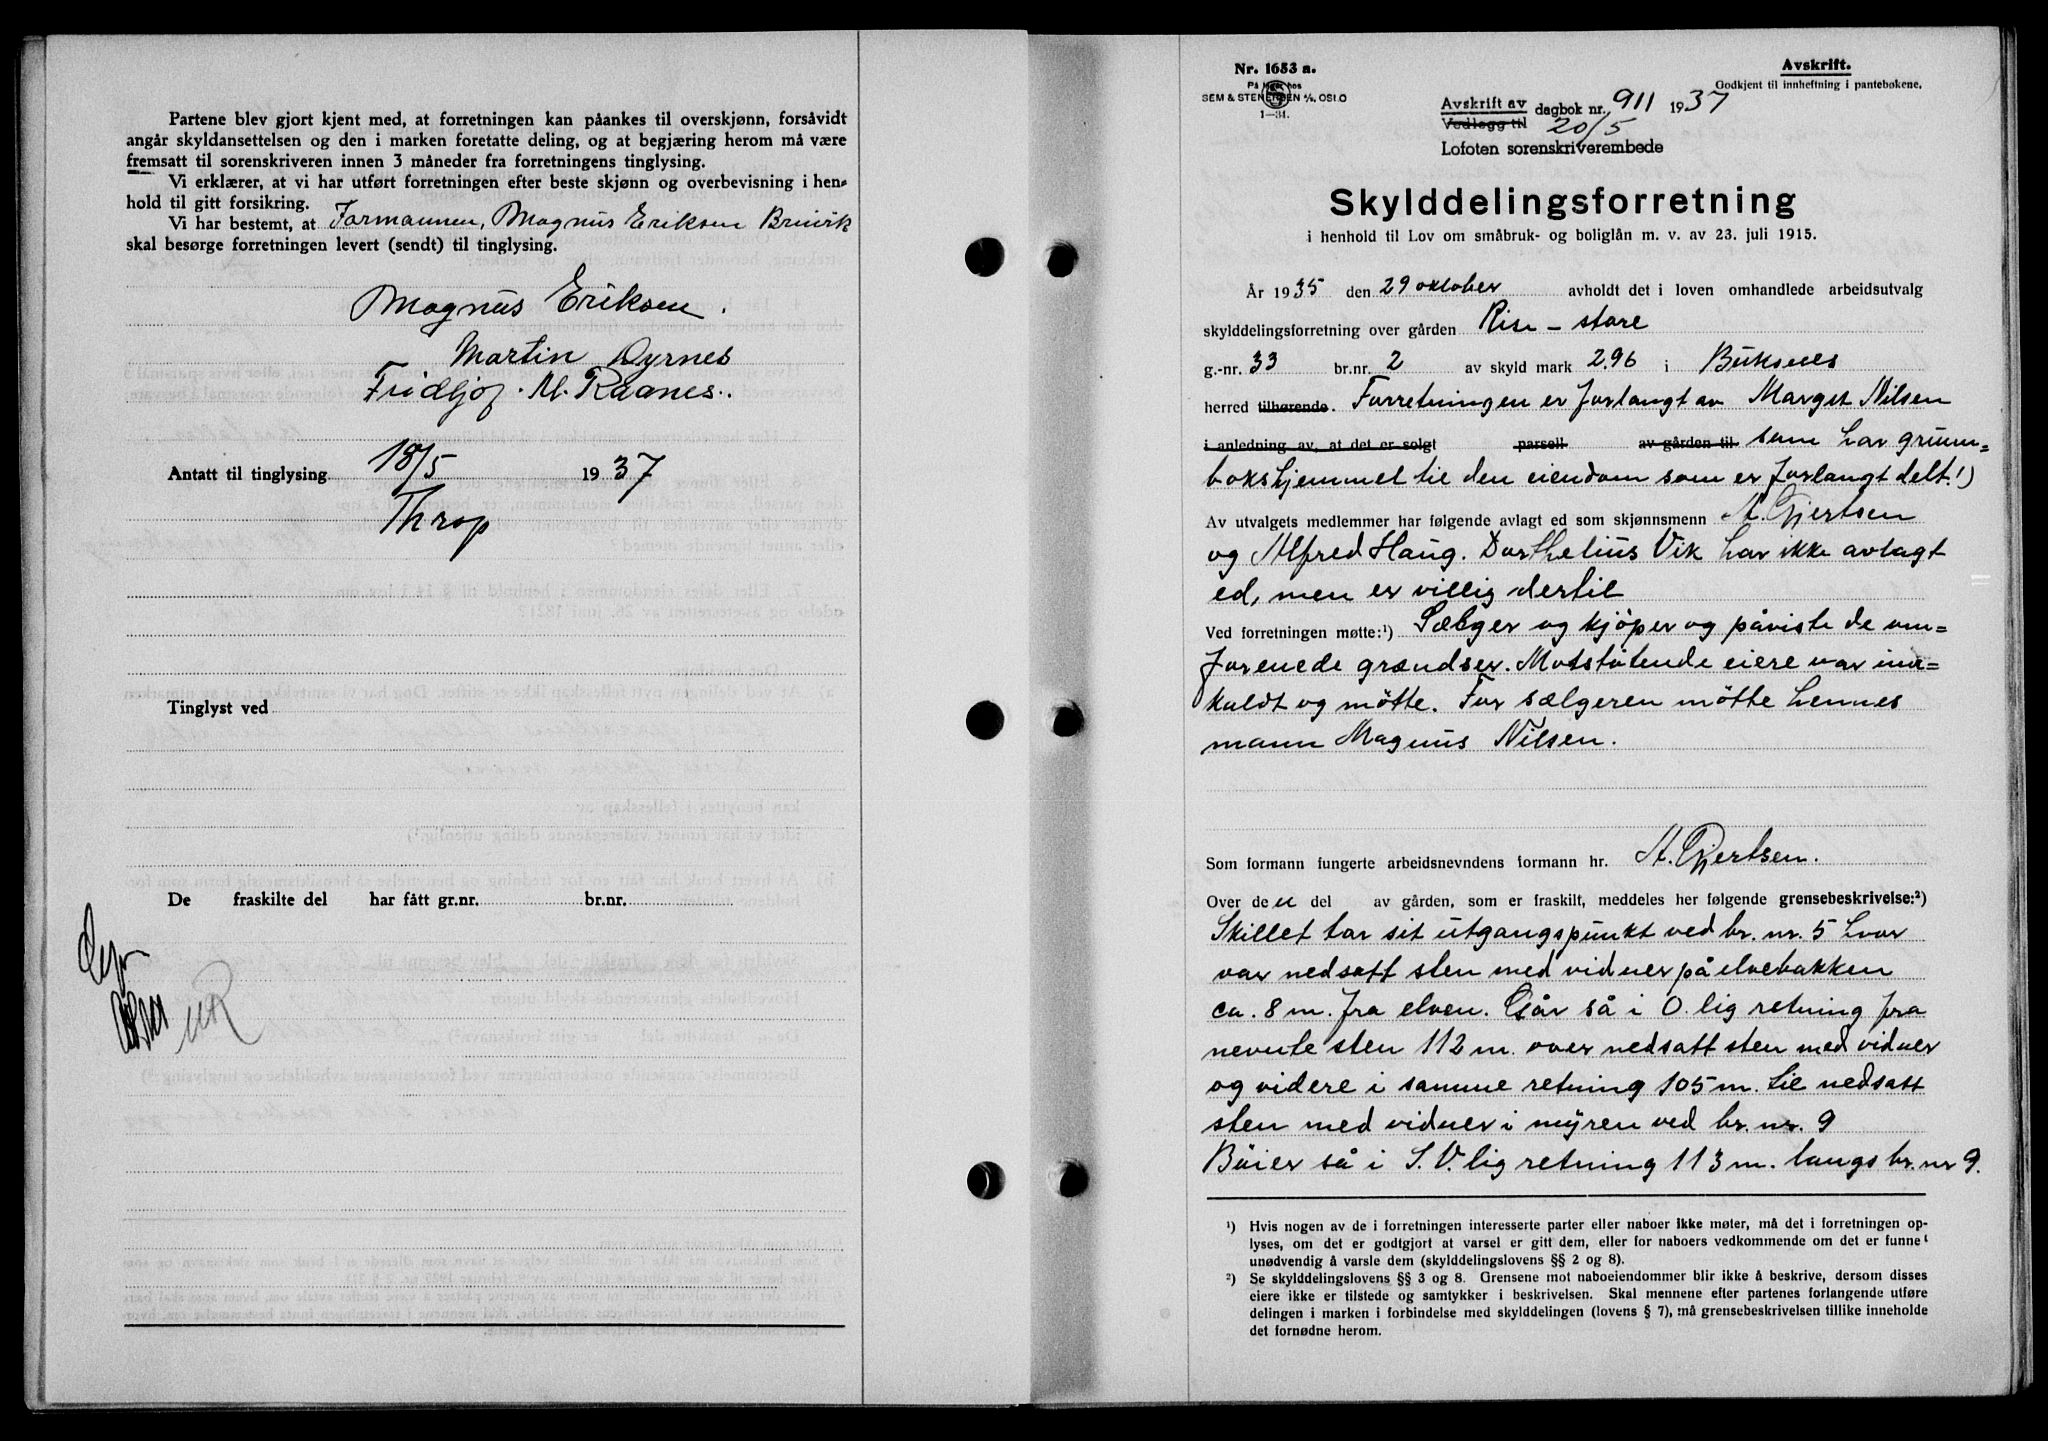 Partene blev gjort kjent med, at forretningen kan påankes til overskjønn, forsåvidt
angår skyldansettelsen og den i marken foretatte deling, og at begjæring herom må være
fremsatt til sorenskriveren innen 3 måneder fra forretningens tinglysing.
Vi erklærer, at vi har utført forretningen efter beste skjønn og overbevisning i hen-
hold til gitt forsikring.
Vi har bestemt, at Formannen, Magnus Eriksen Brurvik
skal besørge forretningen levert (sendt) til tinglysing.
Magnus Eriksen.
Martin Dyrnes
Fridtjof. M. Raanes.
Antatt til tinglysing 18/5 1937
Throp
Tinglyst ved
De fraskilte del har fått gr.nr. br.nr.
Nr. 1653 a.
På lager hos
SEM & STENERSEN A/S, OSLO
1—34.
Avskrift.
Godkjent til innheftning i pantebøkene.
Avskrift av dagbok nr. 911 1937
Vedlegg til 20/5
Lofoten sorenskriverembede
Skylddelingsforretning
i henhold til Lov om småbruk- og boliglån m. v. av 23. juli 1915.
År 1935 den 29 oktober avholdt det i loven omhandlede arbeidsutvalg
skylddelingsforretning over gården Rise - store
g.-nr. 33 br.nr. 2 av skyld mark 2.96 i Buksnes
herred tilhørende. Forretningen er forlangt av Margit Nilsen
i anledning av, at det er solgt parsell av gården til som har grunn=
bokshjemmel til den eiendom som er forlangt delt.¹)
Av utvalgets medlemmer har følgende avlagt ed som skjønnsmenn A. Gjertsen
og Alfred Haug. Dorthelius Vik har ikke avlagt
ed, men er villig dertil
Ved forretningen møtte:¹) Sælger og kjøper og påviste de om=
forenede grændser. Motstøtende eiere var inn=
kaldt og møtte. For sælgeren møtte hennes
mann Magnus Nilsen.
Som formann fungerte arbeidsnevndens formann hr. A. Gjertsen.
Over den del av gården, som er fraskilt, meddeles her følgende grensebeskrivelse:²)
Skillet tar sit utgangspunkt ved br. nr. 5 hvor
var nedsatt sten med vidner på elvebakken
ca. 8 m. fra elven. Går så i O. lig retning fra
nevnte sten 112 m. over nedsatt sten med vidner
og videre i samme retning 105 m. til nedsatt
sten med vidner i myren ved br. nr. 9
Bøier så i S. V. lig retning 113 m. langs br. nr 9.
¹) Hvis nogen av de i forretningen interesserte parter eller naboer ikke møter, må det i forretningen op-
lyses, om det er godtgjort at varsel er gitt dem, eller for naboers vedkommende om det er funnet
unødvendig å varsle dem (skylddelingslovens §§ 2 og 8).
²) Se skylddelingslovens §§ 3 og 8. Grensene mot naboeiendommer blir ikke å beskrive, dersom disses
eiere ikke er tilstede og samtykker i beskrivelsen. Skal mennene efter partenes forlangende utføre
delingen i marken i forbindelse med skylddelingen (lovens § 7), må grensebeskrivelsen tillike inneholde
det fornødne herom.